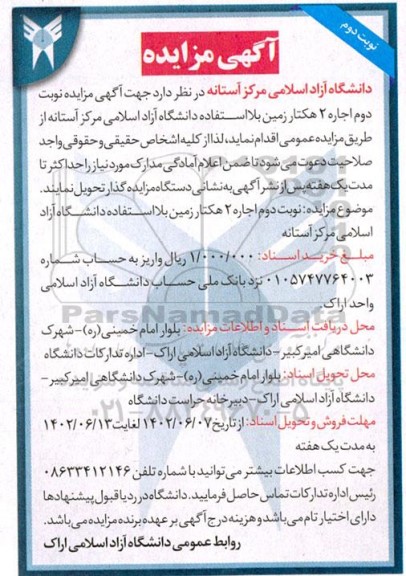 نوبت دوم
آگهی مزایده
دانشگاه آزاد اسلامی مرکز آستانه در نظر دارد جهت آگهی مزایده نوبت
دوم اجاره ۲ هکتار زمین بلااستفاده دانشگاه آزاد اسلامی مرکز آستانه از
طریق مزایده عمومی اقدام نماید، لذا از کلیه اشخاص حقیقی و حقوقی واجد
صلاحیت دعوت می شود تا ضمن اعلام آمادگی مدارک مورد نیاز را حداکثر تا
مدت یک هفته پس از نشر آگهی به نشانی دستگاه مزایده گذار تحویل نمایند.
موضوع مزایده: نوبت دوم اجاره ۲ هکتار زمین بلااستفاده دانشگاه آزاد
اسلامی مرکز آستانه
مبلغ خرید اسناد: ۱/۰۰۰/۰۰۰ ریال واریز به حساب شماره
۰۱۰۵۷۴۷۷۶۴۰۰۳ نزد بانک ملی حساب دانشگاه آزاد اسلامی
واحد اراک.
محل دریافت اسناد و اطلاعات مزایده: بلوار امام خمینی(ره)-شهرک
دانشگاهی امیرکبیر-دانشگاه آزاد اسلامی اراک-اداره تدارکات دانشگاه
محل تحویل اسناد: بلوار امام خمینی(ره)-شهرک دانشگاهی امیرکبیر-
دانشگاه آزاد اسلامی اراک-دبیرخانه حراست دانشگاه
مهلت فروش و تحویل اسناد: از تاریخ ۱۴۰۲/۰۶/۰۷ لغایت ۱۴۰۲/۰۶/۱۳
به مدت یک هفته
جهت کسب اطلاعات بیشتر می توانید با شماره تلفن ۰۸۶۳۳۴۱۲۱۴۶
رئیس اداره تدارکات تماس حاصل فرمایید. دانشگاه در رد یا قبول پیشنهادها
دارای اختیار تام می باشد و هزینه درج آگهی بر عهده برنده مزایده می باشد.
روابط عمومی دانشگاه آزاد اسلامی اراک
ParsNamadData
۰۲۱-۸۸۳۴۹۶۷۰-۵